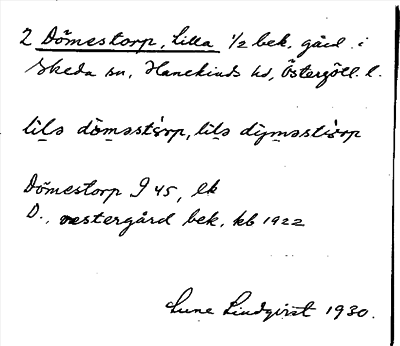 2 Dömestorp, Lilla 1/2 bek. gård i
Skeda sn, Hanekinds hd, Östergötl. l.
lila dömastorp, lila
Dömestorp J 45, ek
D., vestergård bek. kb 1922
Sune Lindqvist 1930.